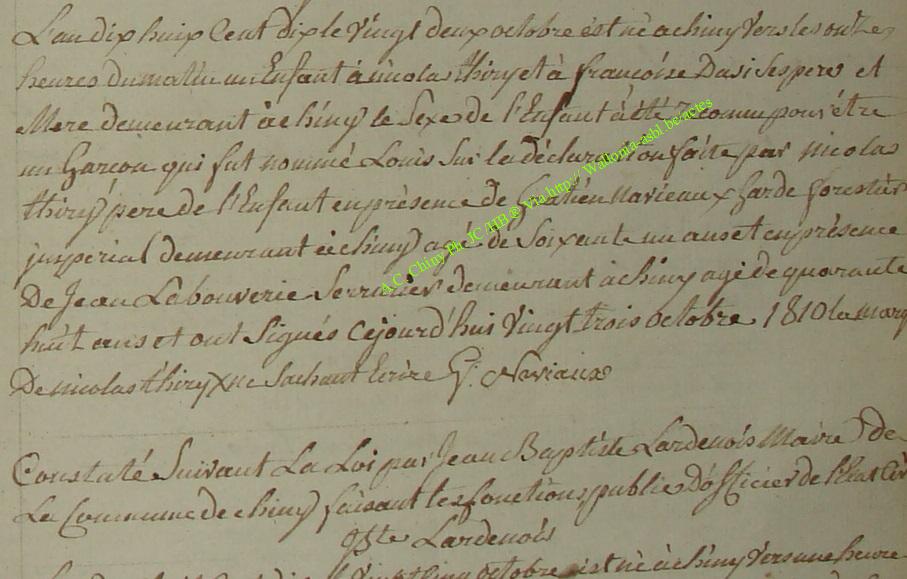 L'an dix huix Cent dix le Vingt deux octobre est né a chiny vers les onze
heures du matin un Enfant à nicolas thiry et à françoise Dasi Ses pere et
Mere demeurant à chiny le Sexe de l'Enfant à été reconnu pour être
un Garçon qui fut nommé Louis Sur la déclaration faite par nicolas
thiry pere de l'Enfant en présence de Gratien Navieaux Garde forestier
jmperial demeurant à chiny agé de Soixante un ans et en présence
De Jean Labouverie Serrurier demeurant à chiny agé de quarante
huit ans et ont Signés Cejourd'hui Vingt trois octobre 1810 la marq
De nicolas thiry X ne Sachant Ecrire G. Naviaux
Constaté Suivant La Loi par Jean Baptiste Lardenois Maire de
La Commune de chiny faisant les fonctions public D'officier de l'Etat Civ
Bste Lardenois
octobre est né à chiny vers une heure
A.C. Chiny Ph. JC /HB ® Via http:// Wallonia-asbl.be/actes